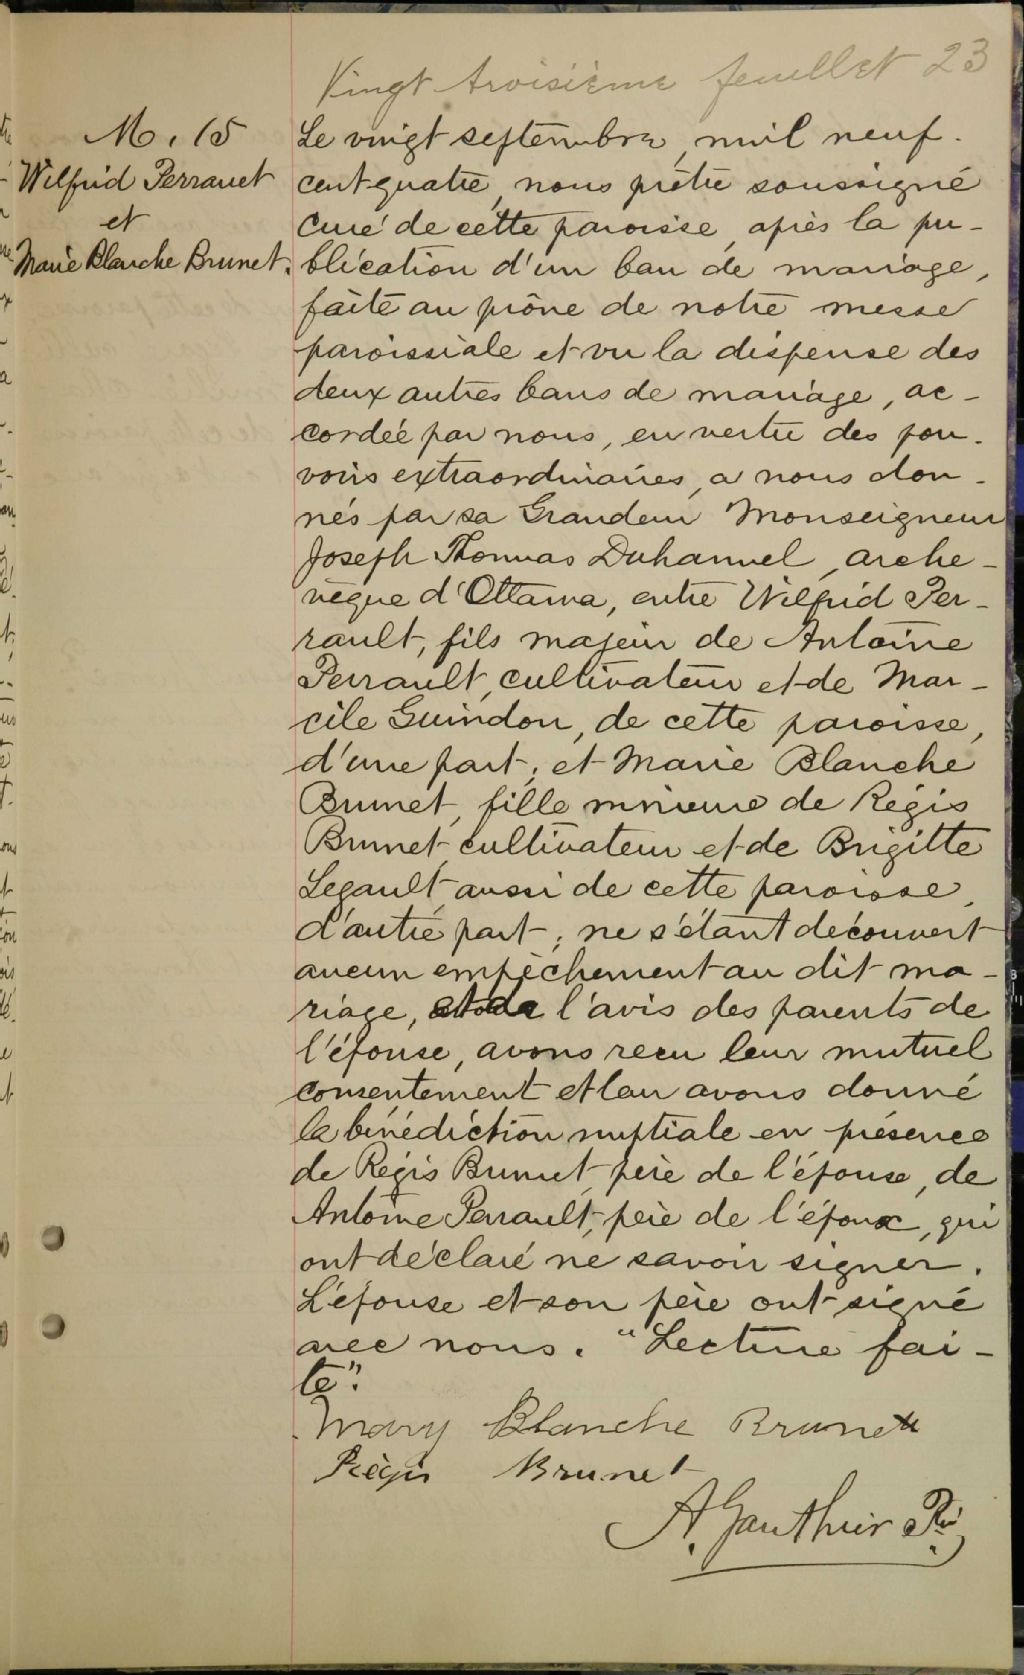 Vingt troisième feuillet 23
M. 15
Wilfrid Perrault
et
Marie Blanche Brunet.
Le vingt septembre, mil neuf-
cent quatre, nous prêtre soussigné
Curé de cette paroisse, après la pu-
blication d'un ban de mariage,
faite au prône de notre messe
paroissiale et vu la dispense des
deux autres bans de mariage, ac-
cordée par nous, en vertu des pou-
voirs extraordinaires, a nous don-
nés par sa Grandeur Monseigneur
Joseph Thomas Duhamel, arche-
vêque d'Ottawa, entre Wilfrid Per-
rault, fils majeur de Antoine
Perrault, cultivateur et de Mar-
cile Guindon, de cette paroisse,
d'une part; et Marie Blanche
Brunet, fille mineure de Régis
Brunet, cultivateur et de Brigitte
Legault, aussi de cette paroisse,
d'autre part; ne s'étant découvert
aucun empêchement au dit ma-
riage, et de l'avis des parents de
l'épouse, avons reçu leur mutuel
consentement et leur avons donné
la bénédiction nuptiale en présence
de Régis Brunet, père de l'épouse, de
Antoine Perrault, père de l'époux, qui
ont déclaré ne savoir signer.
L'épouse et son père ont signé
avec nous. "Lecture fai-
te".
Mary Blanche Brunett
Régis Brunet
A. Gauthier Ptre